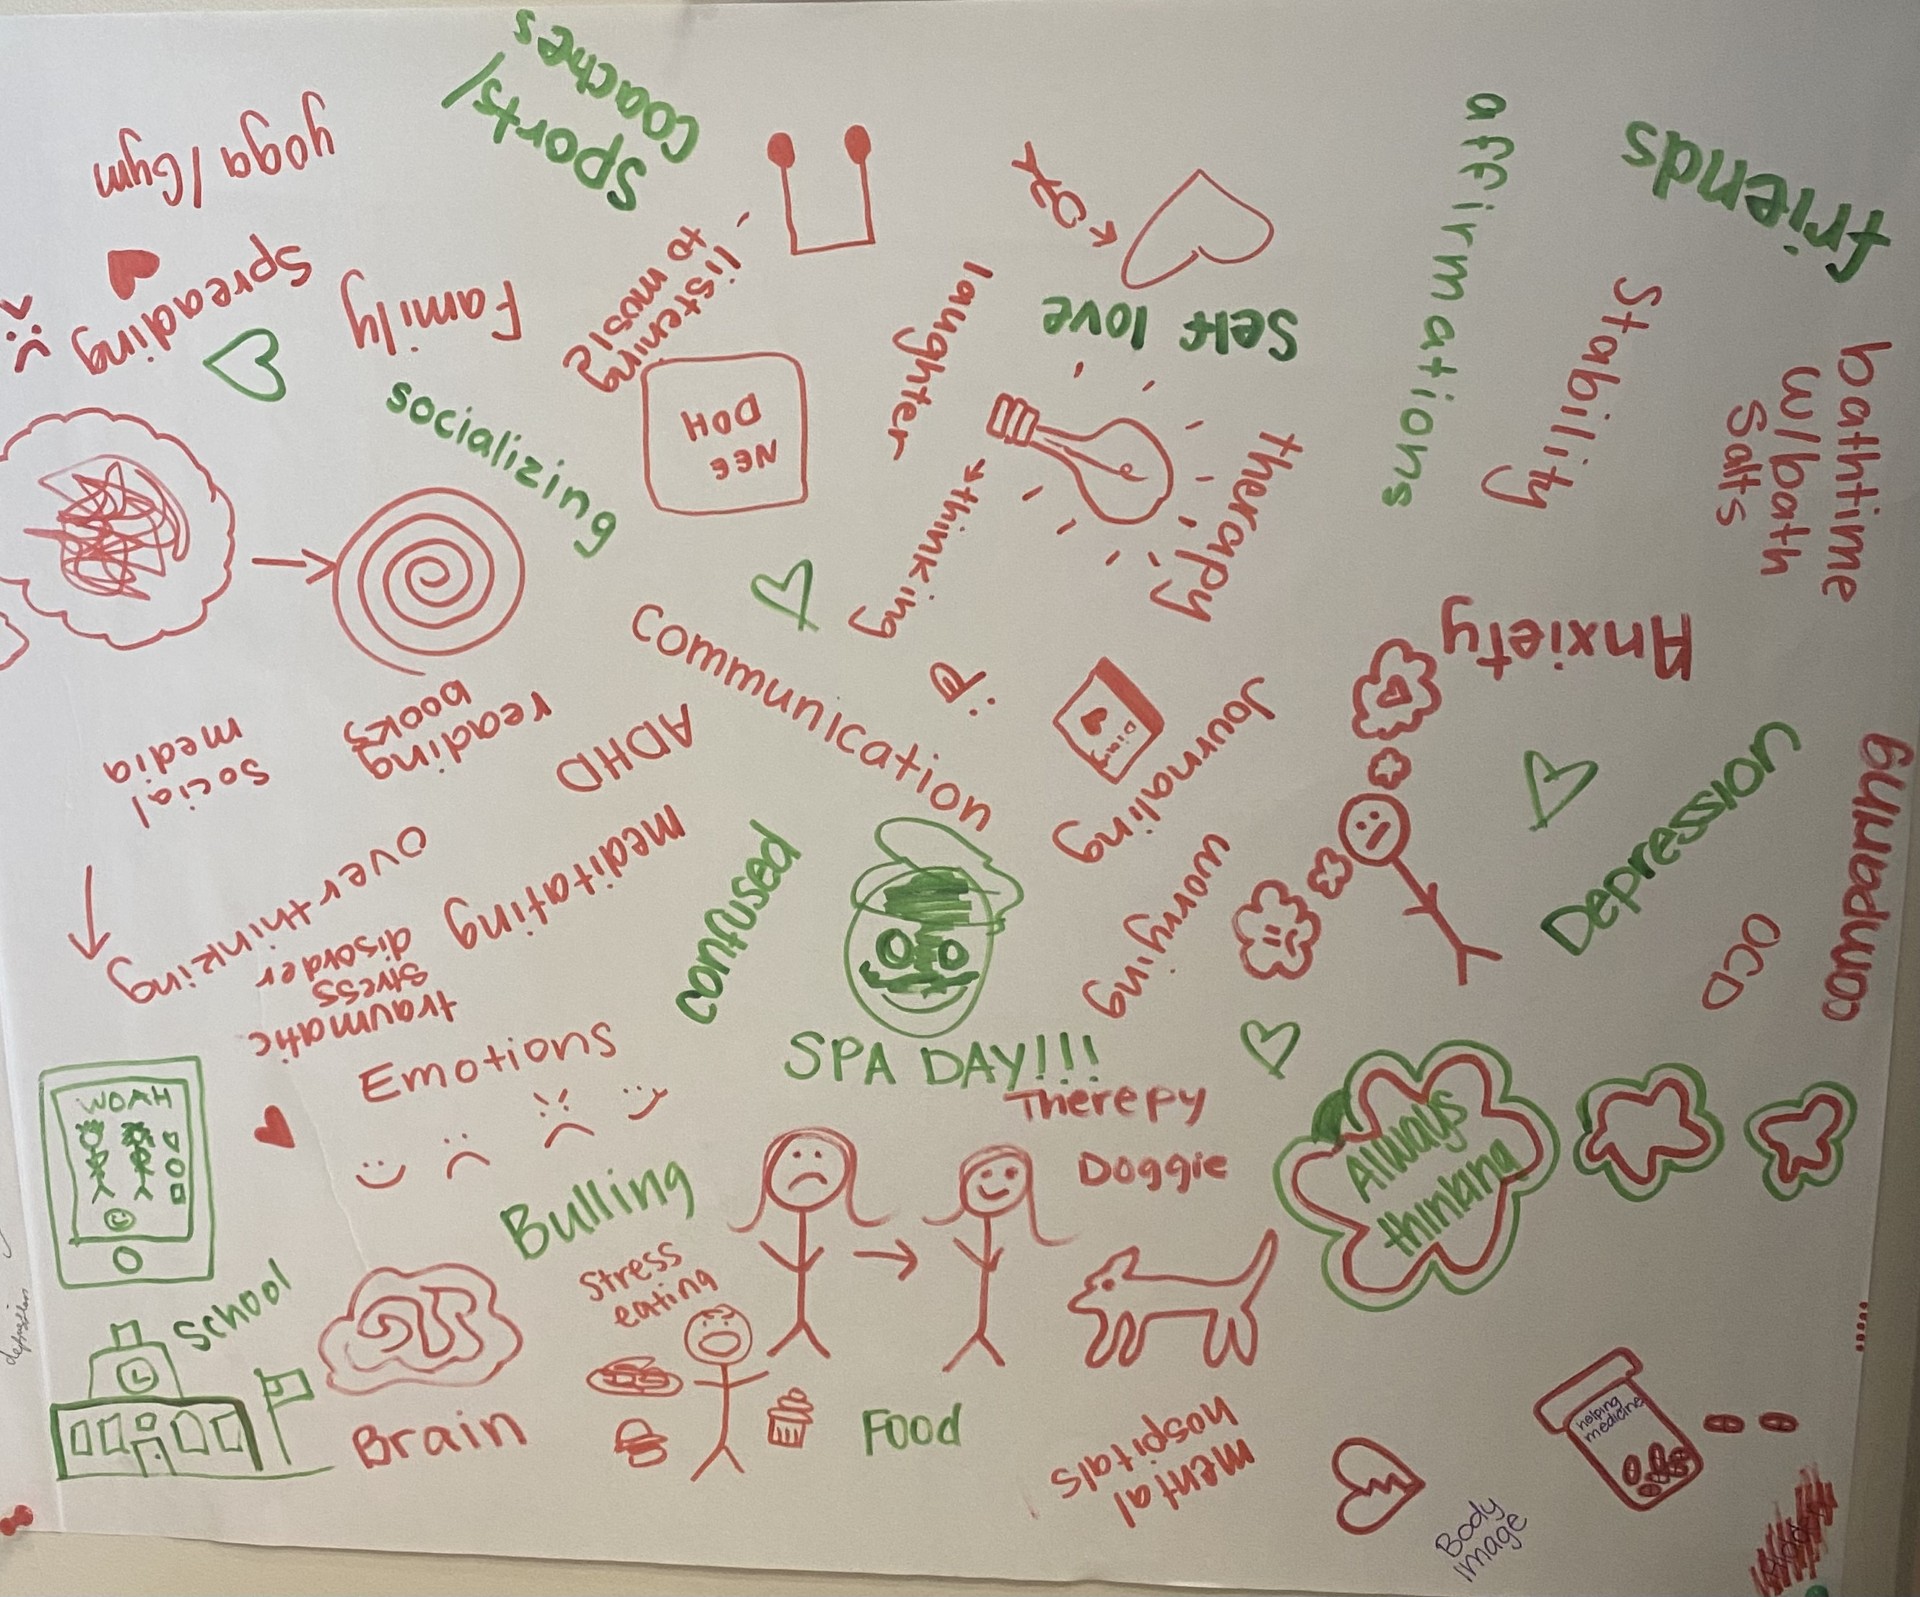 Sports/
coaches
yoga/Gym
Spreading
Family
listening
to music
socializing
NEE
DOH
laughter
OR
Self love
thinking
therapy
affirmations
friends
Stability
bathtime
w/bath
Salts
Anxiety
communication
reading
books
social
media
ADHD
over thinking
meditating
traumatic
stress
disorder
confused
Diary
Journaling
worrying
Depression
OCD
compading
Emotions
SPA DAY!!!
Therepy
Doggie
Allways
thinking
WOAH
Bulling
school
stress
eating
Brain
Food
mental
hospitals
helping
medicine
Body
image
depression